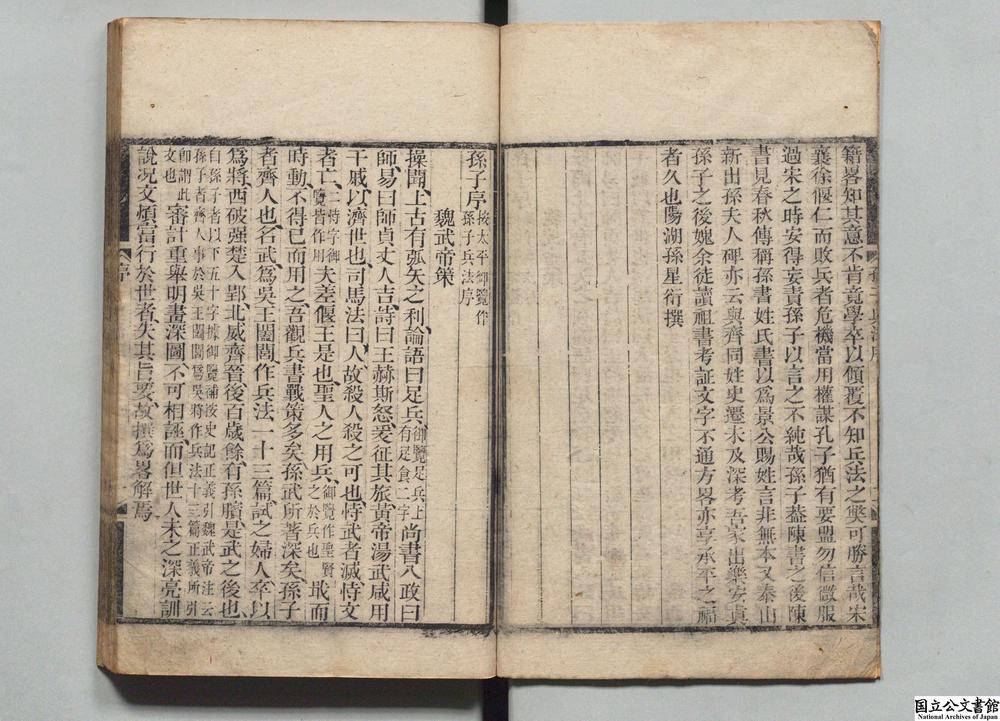 籍畧知其意不肯竟學卒以傾覆不知兵法之弊可勝言哉宋
襄徐偃仁而敗兵者危機當用權謀孔子猶有要盟勿信微服
過宋之時安得妄責孫子以言之不純哉孫子葢陳書之後陳
書見春秋傳稱孫書姓氏書以爲景公賜姓言非無本又泰山
新出孫夫人碑亦云與齊同姓史遷未及深考吾家出樂安真
孫子之後媿余徒讀祖書考証文字不通方畧亦享承平之福
者久也陽湖孫星衍撰
孫子序按太平御覽作孫子兵法序
魏武帝䇿
操聞上古有弧矢之利論語曰足兵御覽足兵上有足食二字尚書八政曰
師易曰師貞丈人吉詩曰王赫斯怒爰征其旅黃帝湯武咸用
干戚以濟世也司馬法曰人故殺人殺之可也恃武者滅恃文
者亡二恃字御覽皆作用夫差偃王是也聖人之用兵御覽作聖賢之於兵也戢而
時動不得已而用之吾觀兵書戰策多矣孫武所著深矣孫子
者齊人也名武爲吳王闔閭作兵法一十三篇試之婦人卒以
爲將西破强楚入郢北威齊晉後百歲餘有孫臏是武之後也
自孫子者以下五十字據御覽補按史記正義引魏武帝注云孫子者齊人事於吳王闔閭爲吳將作兵法十三篇正義所引卽謂此文也審計重舉明畫深圖不可相誣而但世人未之深亮訓
說況文煩富行於世者失其旨要故撰爲畧解焉
序
国立公文書館
National Archives of Japan